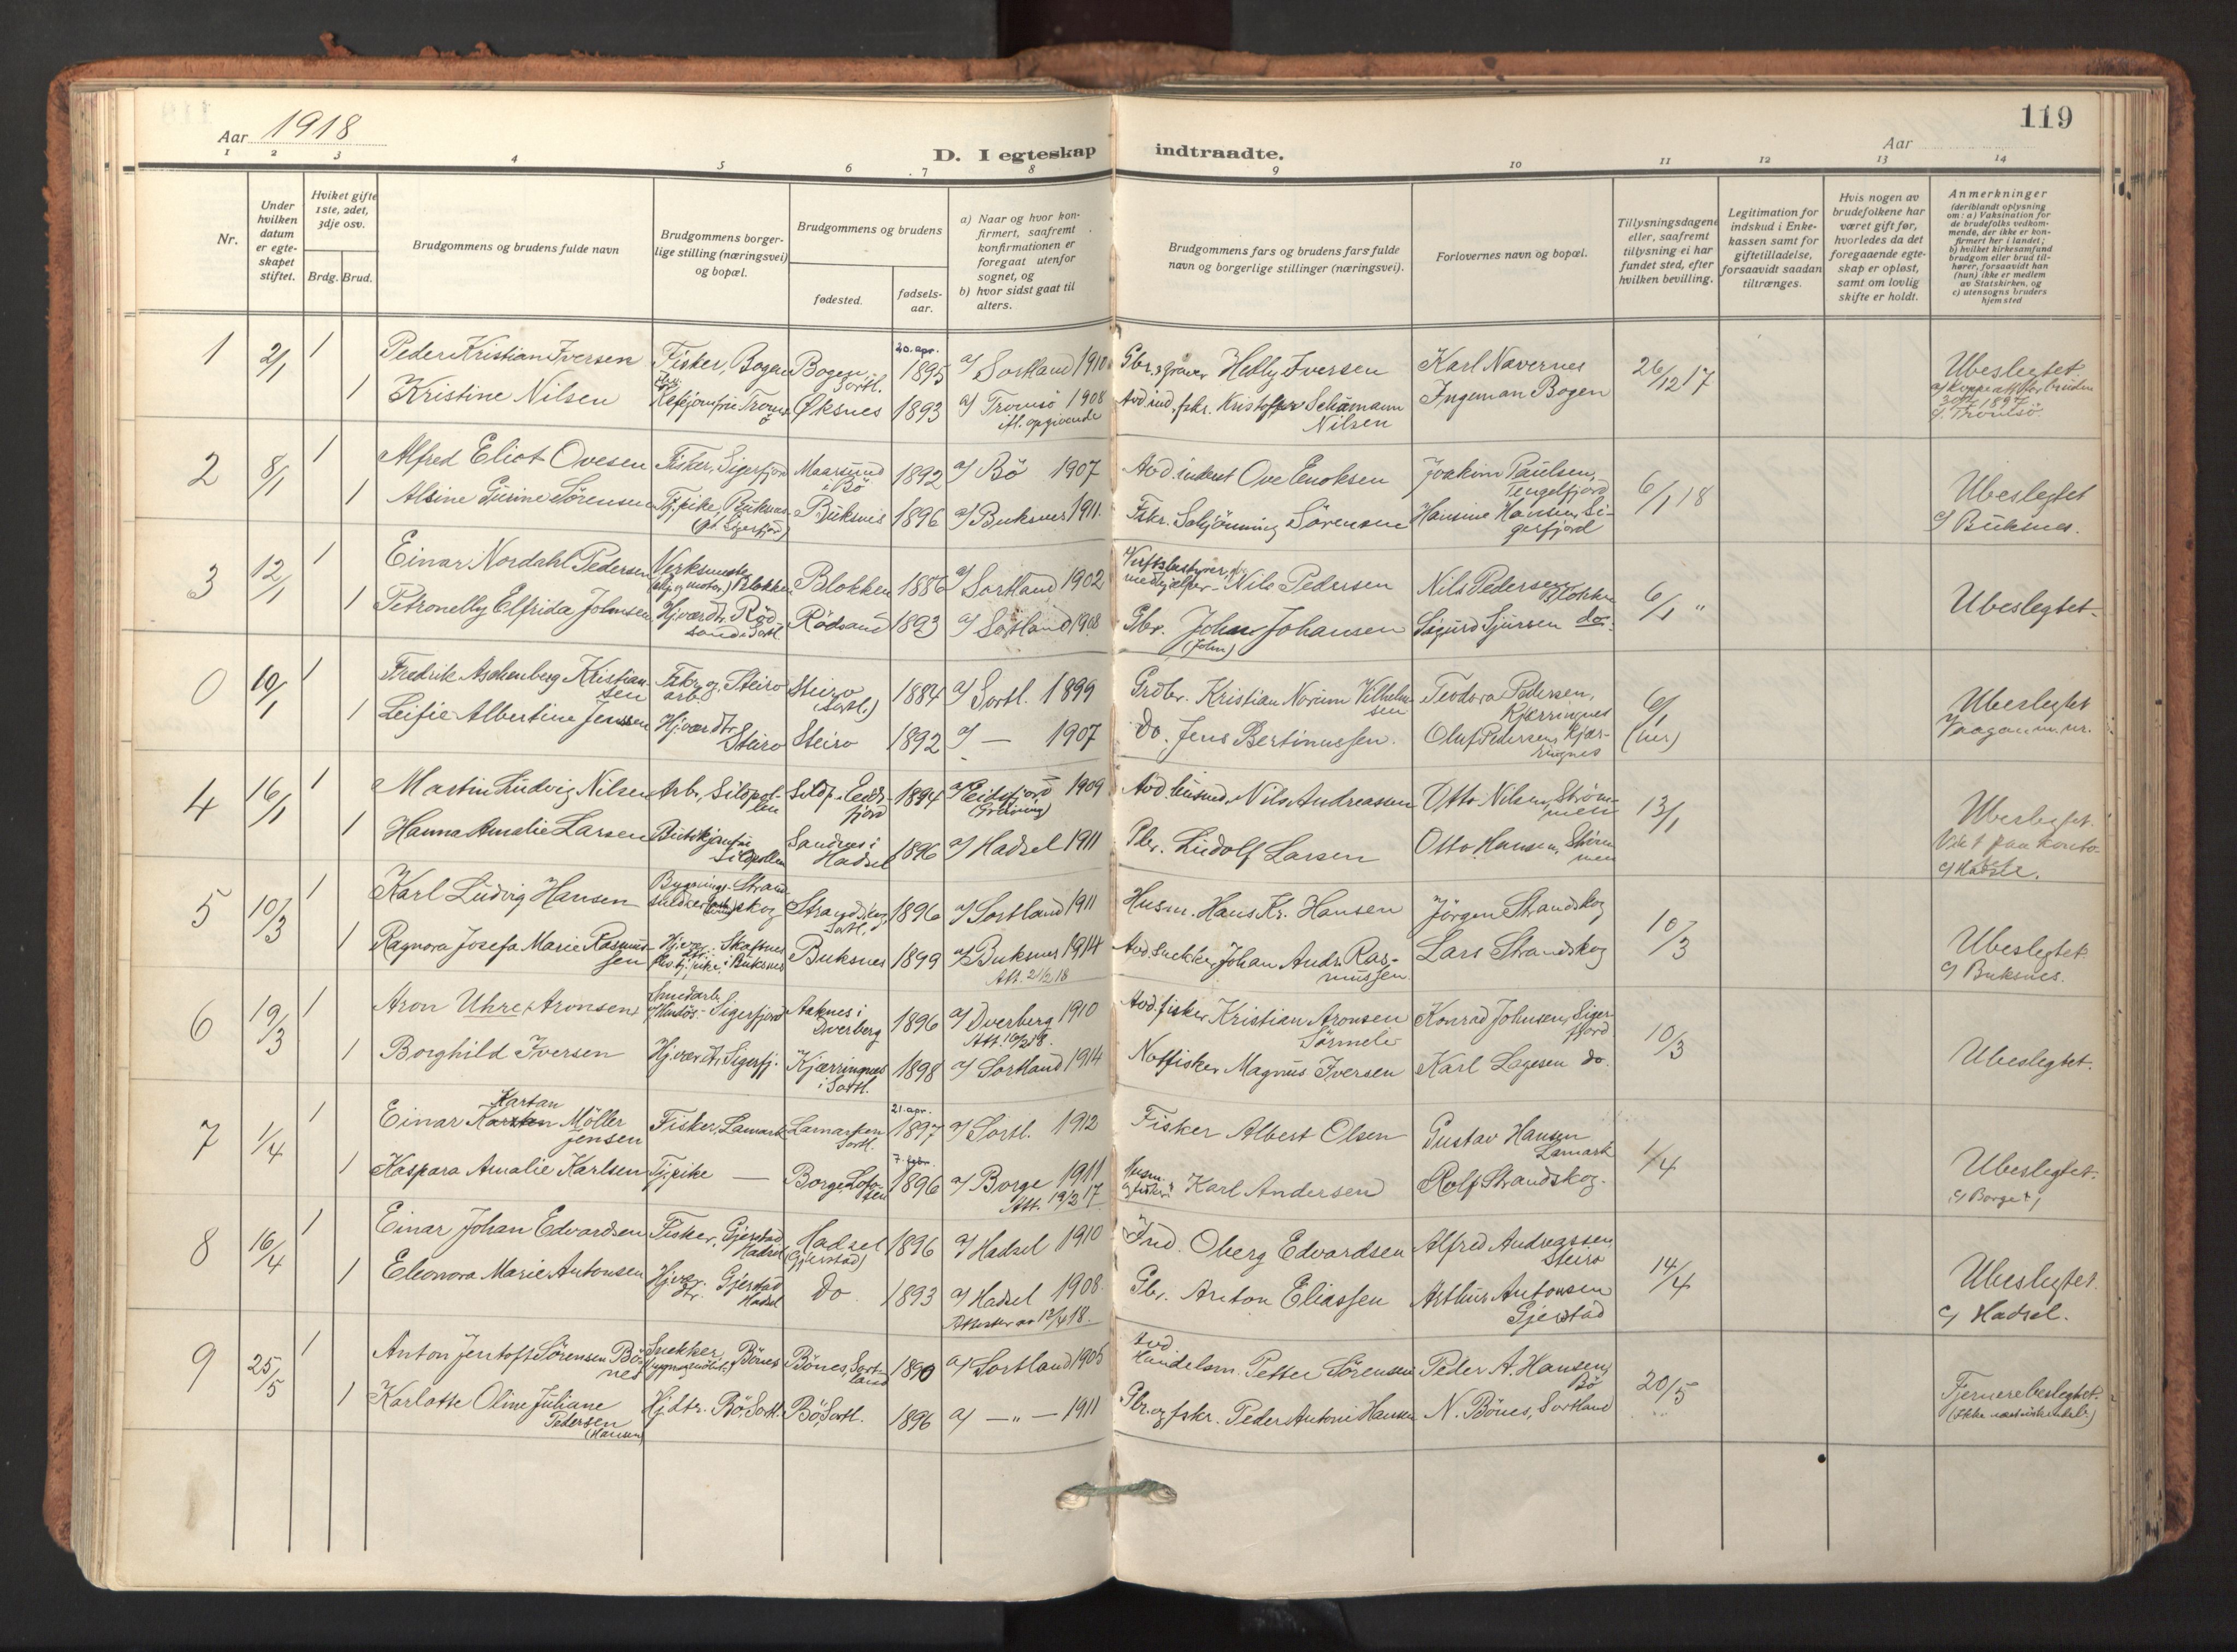 119
Aar 1918
Aar
D. I egteskap indtraadte.
1 2 3 4 5 6 7 8 9 10 11 12 13 14
Nr.
Under hvilken datum er egteskapet stiftet.
Hviket gifte 1ste, 2det, 3dje osv.
Brdg. Brud.
Brudgommens og brudens fulde navn
Brudgommens borgerlige stilling (næringsvei) og bopæl.
Brudgommens og brudens
fødested.
fødselsaar.
a) Naar og hvor konfirmert, saafremt konfirmationen er foregaat utenfor sognet, og
b) hvor sidst gaat til alters.
Brudgommens fars og brudens fars fulde navn og borgerlige stillinger (næringsvei).
Forlovernes navn og bopæl.
Tillysningsdagene eller, saafremt tillysning ei har fundet sted, efter hvilken bevilling.
Legitimation for indskud i Enkekassen samt for giftetilladelse, forsaavidt saadan tiltrænges.
Hvis nogen av brudefolkene har været gift før, hvorledes da det foregaaende egteskap er opløst, samt om lovlig skifte er holdt.
Anmerkninger
(deriblandt oplysning om: a) Vaksination for de brudefolks vedkommende, der ikke er konfirmert her i landet; b) hvilket kirkesamfund brudgom eller brud tilhører, forsaavidt han (hun) ikke er medlem av Statskirken, og c) utensogns bruders hjemsted
1 2/1 1 Peder Kristian Iversen Fisker, Bogen Bogen, Sortl. 20. apr. 1895 a/ Sortland 1910 Iversen Karl Navernes 26/12 17 Ubeslegtet
1 Kristine Nilsen Øksnes 1893 a/ Tromsö 1908 Nilsen Ingeman Bogen
2 8/1 1 Alfred Eliot Ovesen Fisker, Sigerfjord Maarsund i Bö 1892 a/ Bö 1907 Ove Enoksen Joakim Paulsen, 6/1 18 Ubeslegtet
1 Alsine Gusine Sörensen Tj.pike, Buksnes (pt. Sigerfjord) Buksnes 1896 a/ Buksnes 1911. Fskr. Sörensen Hansine Hansen, Sigerfjord c/ Buksnes.
3 12/1 1 Einar Nordahl Pedersen Blokken 1886 a/ Sortland 1902 Nils Pedersen Nils Pedersen Blokken 6/1 " Ubeslegtet.
1 Petronelly Elfrida Johnsen Hj.værdtr. Rödsand i Sortl. Rödsand 1893 a/ Sortland 1908 Gbr. Johan Johansen (John) Sigurd Sjursen do.
0 10/1 1 Fredrik Aschenberg Kristiansen Fskr. og arb. Steiro Steiro (Sortl.) 1884 a/ Sortl. 1899 Grdbr. Kristian Norum Vilhelmsen Teodora Pedersen, Kjærringnes 6/1 (her) Ubeslegtet
1 Leifie Albertine Jenssen Hj.værdtr. Steiro Steiro 1892 a/ — 1907 Do. Jens Bertinussen. Oluf Pedersen, Kjærringnes
4 16/1 1 Martin Ludvig Nilsen Arb., Sildpollen Sildp. Eidsfjord 1894 a/ Eidsfjord 1909 Avd. Nils Andreassen Otto Nilsen, Strömmen 13/1 Ubeslegtet.
1 Hanna Amalie Larsen Sildpollen Sandnes i Hadsel 1896 a/ Hadsel 1911 Gbr. Ludolf Larsen Otto Hansen, Strömmen
5 10/3 1 Karl Ludvig Hansen Strandskog Strandskog, Sortl. 1896 a/ Sortland 1911 Husm. Hans Kr. Hansen Jörgen Strandskog 10/3 Ubeslegtet.
1 Ragnora Josefa Marie Rasmussen Buksnes 1899 a/ Buksnes 1914 Att. 21/2 18 Avd. Snekker Johan Andr. Rasmussen Lars Strandskog c/ Buksnes.
6 19/3 1 Aron Uhre Aronsen Sigerfjord Aaknes i Dverberg 1896 a/ Dverberg 1910 Avd. fisker Kristian Aronsen Konrad Johnsen, Sigerfjord 10/3 Ubeslegtet.
1 Borghild Iversen Hj.værdtr. Sigerfj. Kjærringnes i Sortl. 1898 a/ Sortland 1914 Notfisker Magnus Iversen Karl Lagesen do.
7 1/4 1 Einar Karsten Kartan Möller Jensen Fisker, Lamark Lamarken Sortl. 21. apr. 1897 a/ Sortl. 1912 Fisker Albert Olsen Gustav Hansen Lamark 1/4 Ubeslegtet.
1 Kaspara Amalie Karlsen Tj.pike — Borge, Lofoten 7. febr. 1896 a/ Borge 1911 Att. 19/2 17 Husm. og fisker Karl Andersen Rolf Strandskog.
8 16/4 1 Einar Johan Edvardsen Fisker, Gjerstad Hadsel Hadsel (Gjerstad) 1896 a/ Hadsel 1910 Ind. Oberg Edvardsen Alfred Andreassen, Steiro 14/4 Ubeslegtet
1 Eleonora Marie Antonsen Gjerstad Hadsel Do. 1893 a/ Hadsel 1908. Attester av 12/4 18. Gbr. Anton Eliassen Arthur Antonsen Gjerstad c/ Hadsel.
9 25/5 1 Anton Jentoft Sörensen Bönes Snekker, Bönes Bönes, Sortland 1890 a/ Sortland 1905 Avd Handelsm. Petter Sörensen Peder A. Hansen, Bö 20/5 Fjernere beslegtet.
1 Karlotte Oline Juliane Pedersen (Hansen) Hj.dtr. Bö, Sortl. Bö, Sortl. 1896 a/ — " — 1911 Gbr. og fskr. Peder Antoni Hansen N. Bönes, Sortland